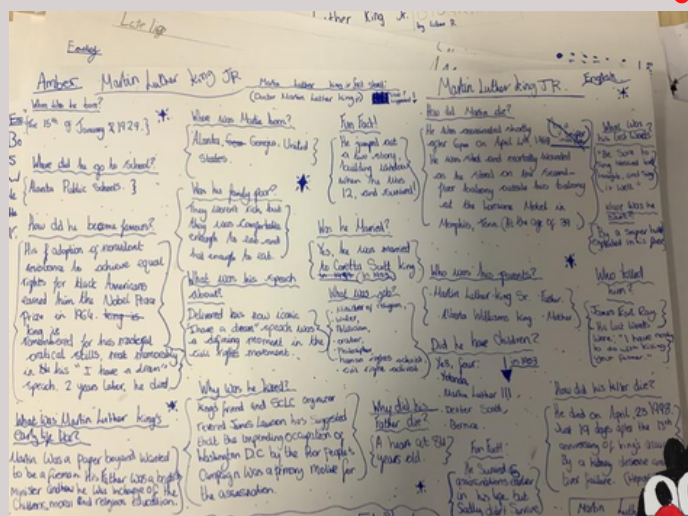 Luther King Jr.
by
Late
English
Amber Martin Luther King JR
Martin Luther King Jr fact sheet!
(Doctor Martin Luther King Jr)
Martin Luther King JR.
English
When was he born?
the 15th of January & 1929.}
Where did he go to school?
{Atlanta Public Schools. }
How did he become famous?
His adoption of nonviolent
resistance to achieve equal
rights for black Americans
earned him the Nobel Peace
Prize in 1964.
King is
remembered for his masterful
oratical skills, most memorably
in his "I have a dream"
speech. 2 years later, he died.
What was Martin Luther King's
early life like?
Martin was a paper boy and wanted
to be a fireman. His Father was a
Minister and he was in charge of the
Childrens moral and religious education.
Where was Martin born?
Atlanta, Georgia, United
States.
Was his family poor?
They weren't rich, but
they were comfortable
enough to eat and
had enough to eat.
What was his speech
about?
Delivered his now iconic
"I have a dream" speech was
a defining moment in the
civil rights movement.
Why was he killed?
King's friend and SCLC organizer
reverend James Lawson has suggested
that the impending occupation of
Washington D.C by the Poor people's
Campaign was a primary motive for
the assassination.
Fun Fact!
He jumped out
a two story
building window
when he was
12, and survived!
Was he Married?
Yes, he was married
to Coretta Scott King
What was job?
· Minister of religion,
· writer,
· Politician,
· orator,
· Philosopher
· human rights activist
· civil right activist
Why did his
Father die?
A heart at 84
years old.
How did Martin die?
He was assassinated shortly
after 6pm on April 4th, 1968
He was shot and mortally wounded
as he stood on the second-
floor balcony outside his balcony
at the Lorraine Motel in
Memphis, Tenn. (At the age of 39
Who was his parents?
· Martin Luther King Sr. - Father.
· Alberta Williams King - Mother
Did he have Children?
Yes, four:
Yolanda,
Martin Luther III
Dexter Scott,
Bernice
Fun Fact!
He Survived
assassinations earlier
in his life but
Sadly didn't Survive
What was
his last words
"Be Sure to
and Sing
it well."
Where was he
Shot?
By a Sniper bullet
Who killed
him?
James Earl Ray.
His last words
were: "I have
to do with killing
your father."
How did his killer die?
He died on April 23 1998.
Just 19 days after the
anniversary of King's assassination
By a kidney disease and
liver failure.
Martin Luth